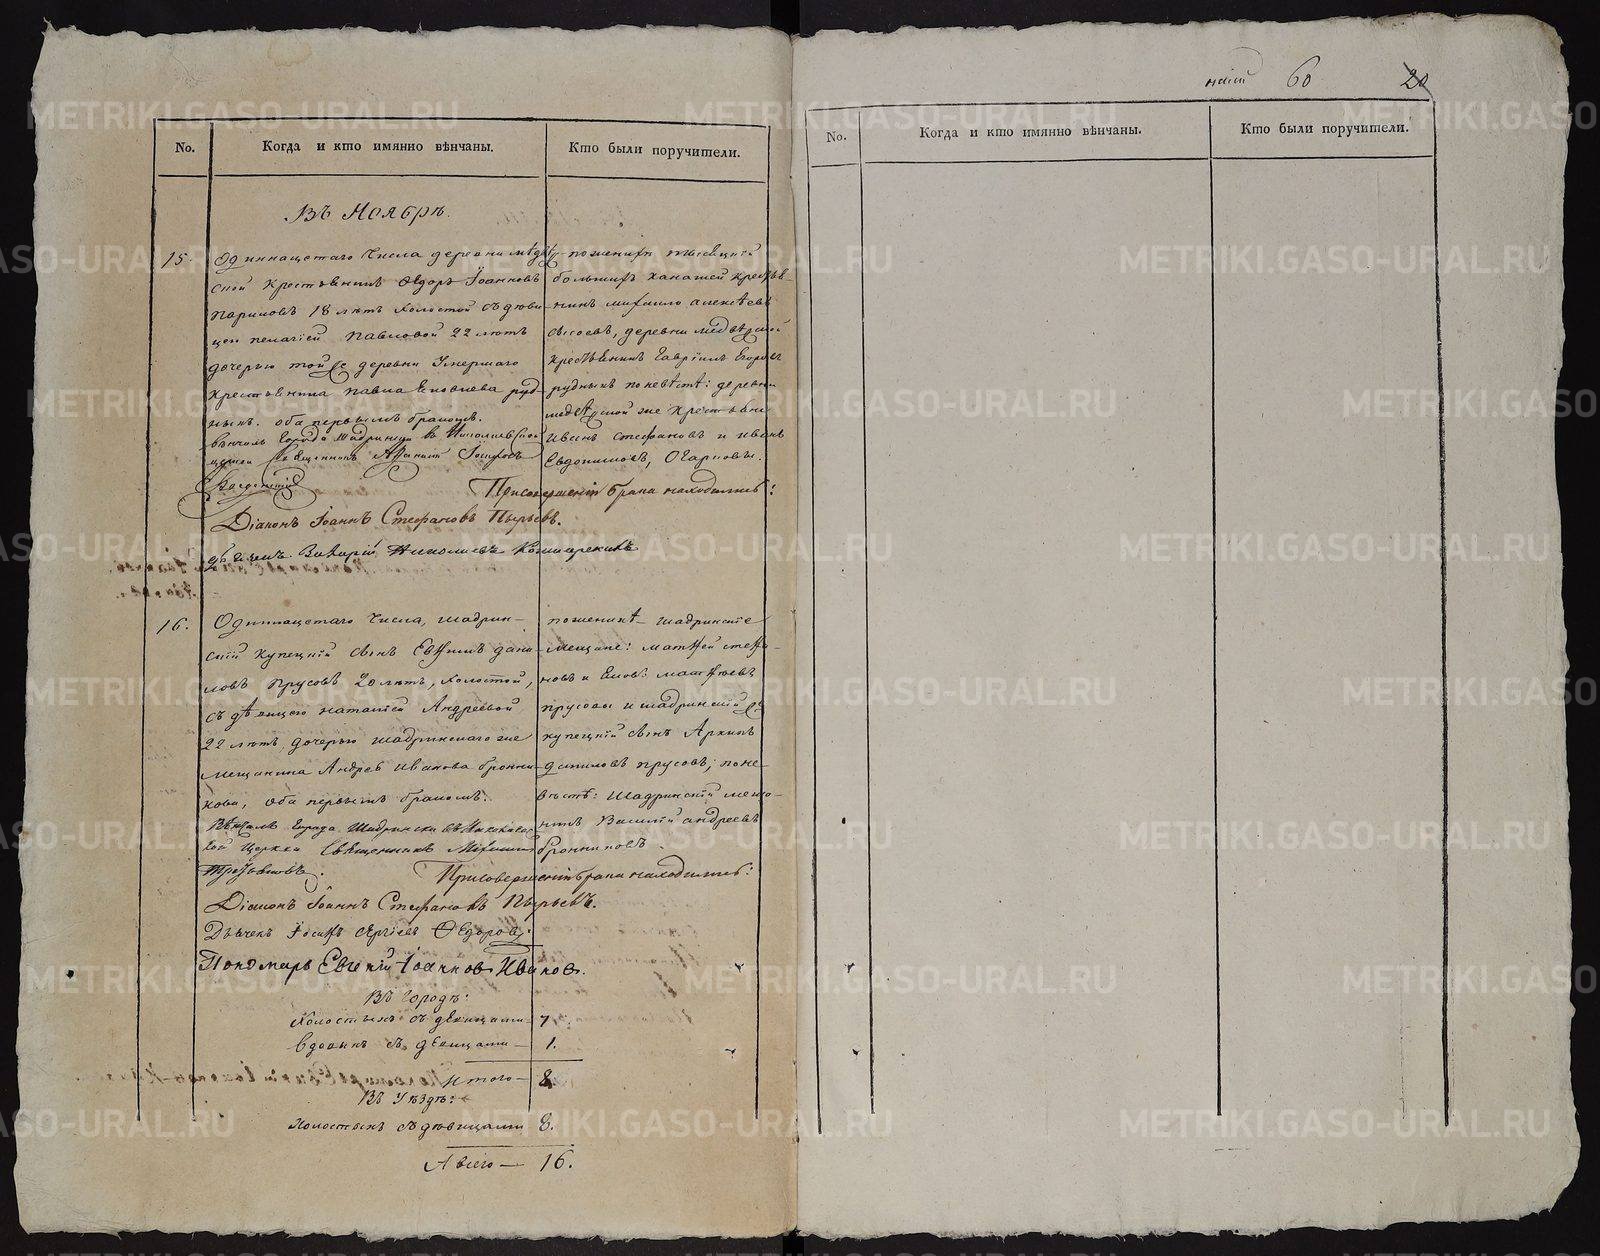 No.
Когда и кто имянно вѣнчаны.
Кто были поручители.
Въ Ноябрѣ.
15.
Одиннацетаго Числа деревни
ской крестьянинъ Ѳедоръ Іоанновъ
Париловъ 18 лѣтъ Холостой съ дѣви-
цею Пелагіей Павловой 22 лѣтъ
дочерью той же деревни Умершаго
крестьянина Павла Яковлева руд-
ныхъ. оба первымъ бракомъ.
Вѣнчалъ Города Шадринска в Николаевской
церкви Священникъ
пожениxѣ
большихъ крестья-
нинъ Михаило Алексѣевъ
Сысоевъ, деревни
крестьянинъ Гавріилъ Егоровъ
рудныхъ по невѣстѣ: деревни
же крестьяни
Иванъ Стефановъ и Иванъ
Евдокимовъ, Огарковы.
При совершеніи брака находились:
Діаконъ Іоаннъ Стефановъ Пырьевъ.
Захарій Николаевъ
16.
Одиннацетаго Числа, Шадрин-
скій купецкій сынъ Евѳимъ Дани-
ловъ Прусовъ 20 лѣтъ, холостой,
съ дѣвицею Наталіей Андреевой
22 лѣтъ, дочерью шадринскаго же
мещанина Андрея Иванова бронни-
кова, оба первымъ бракомъ.
Вѣнчалъ Города Шадринска въ Николаевс
кой Церкви Священникъ Михаилъ
по женихѣ шадринскіе
мещане: Матѳей
новъ и Матѳеевъ
прусовы и шадринскій же
купецкій сынъ Архипъ
Даниловъ прусовъ; по не-
вѣстѣ: Шадринскій меща-
нинъ Василій андреевъ
бронниковъ.
При совершеніи брака находились:
Діаконъ Іоаннъ Стефановъ Пырьевъ.
Дьячекъ Іосифъ Сергіевъ Ѳедоровъ.
Пономарь Евгеній Іоанновъ Ивановъ.
Въ городѣ:
Холостыхъ съ дѣвицами 7.
вдовыхъ съ дѣвицами — 1.
Итого — 8.
Въ Уѣздѣ:
Холостыхъ съ дѣвицами 8.
А всего — 16.
60
20
No.
Когда и кто имянно вѣнчаны.
Кто были поручители.
METRIKI.GASO-URAL.RU